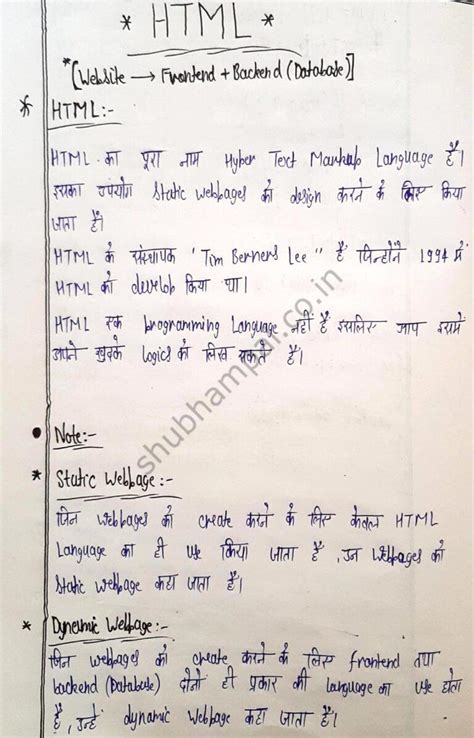 * HTML *
*[Website → Frontend + Backend (Database)]
* HTML:-
HTML का पूरा नाम Hyper Text Markup Language है।
इसका उपयोग Static Webpages को design करने के लिए किया
जाता है।
HTML के संस्थापक "Tim Berners Lee" है जिन्होंने 1994 में
HTML को develop किया था।
HTML एक programming Language नहीं है इसलिए आप इसमें
अपने खुदके logics को लिख सकते है।
• Note:-
* Static Webpage:-
जिन webpages को create करने के लिए केवल HTML
Language का ही use किया जाता है, उन webpages को
Static webpage कहा जाता है।
* Dynamic Webpage:-
जिन webpages को create करने के लिए frontend तथा
backend (Database) दोनों ही प्रकार की language का use होता
है, उन्हें dynamic webpage कहा जाता है।
shubhampal.co.in